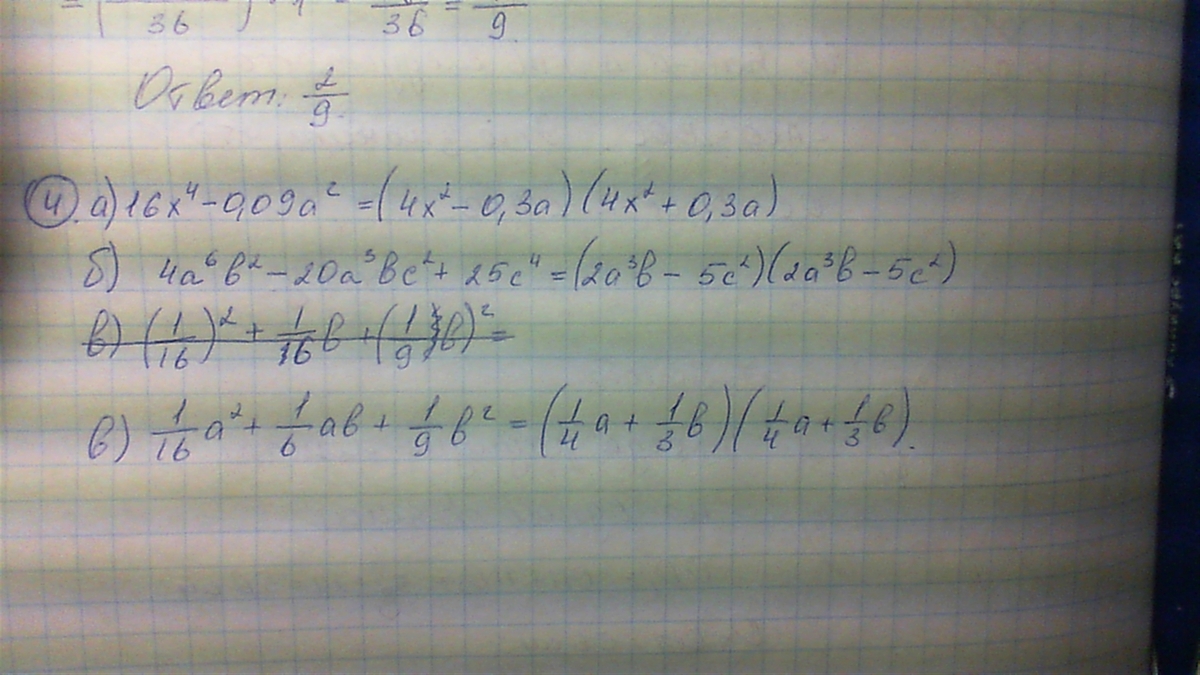 = ( /36) · = /36 = /9.
Ответ: 2/9.
4. а) 16x⁴ - 0,09a² = (4x² - 0,3a)(4x² + 0,3a)
б) 4a⁶b² - 20a³bc² + 25c⁴ = (2a³b - 5c²)(2a³b - 5c²)
в) (1/16)² + 1/16 b + (1/9 b)² =
в) 1/16 a² + 1/6 ab + 1/9 b² = (1/4 a + 1/3 b)(1/4 a + 1/3 b).